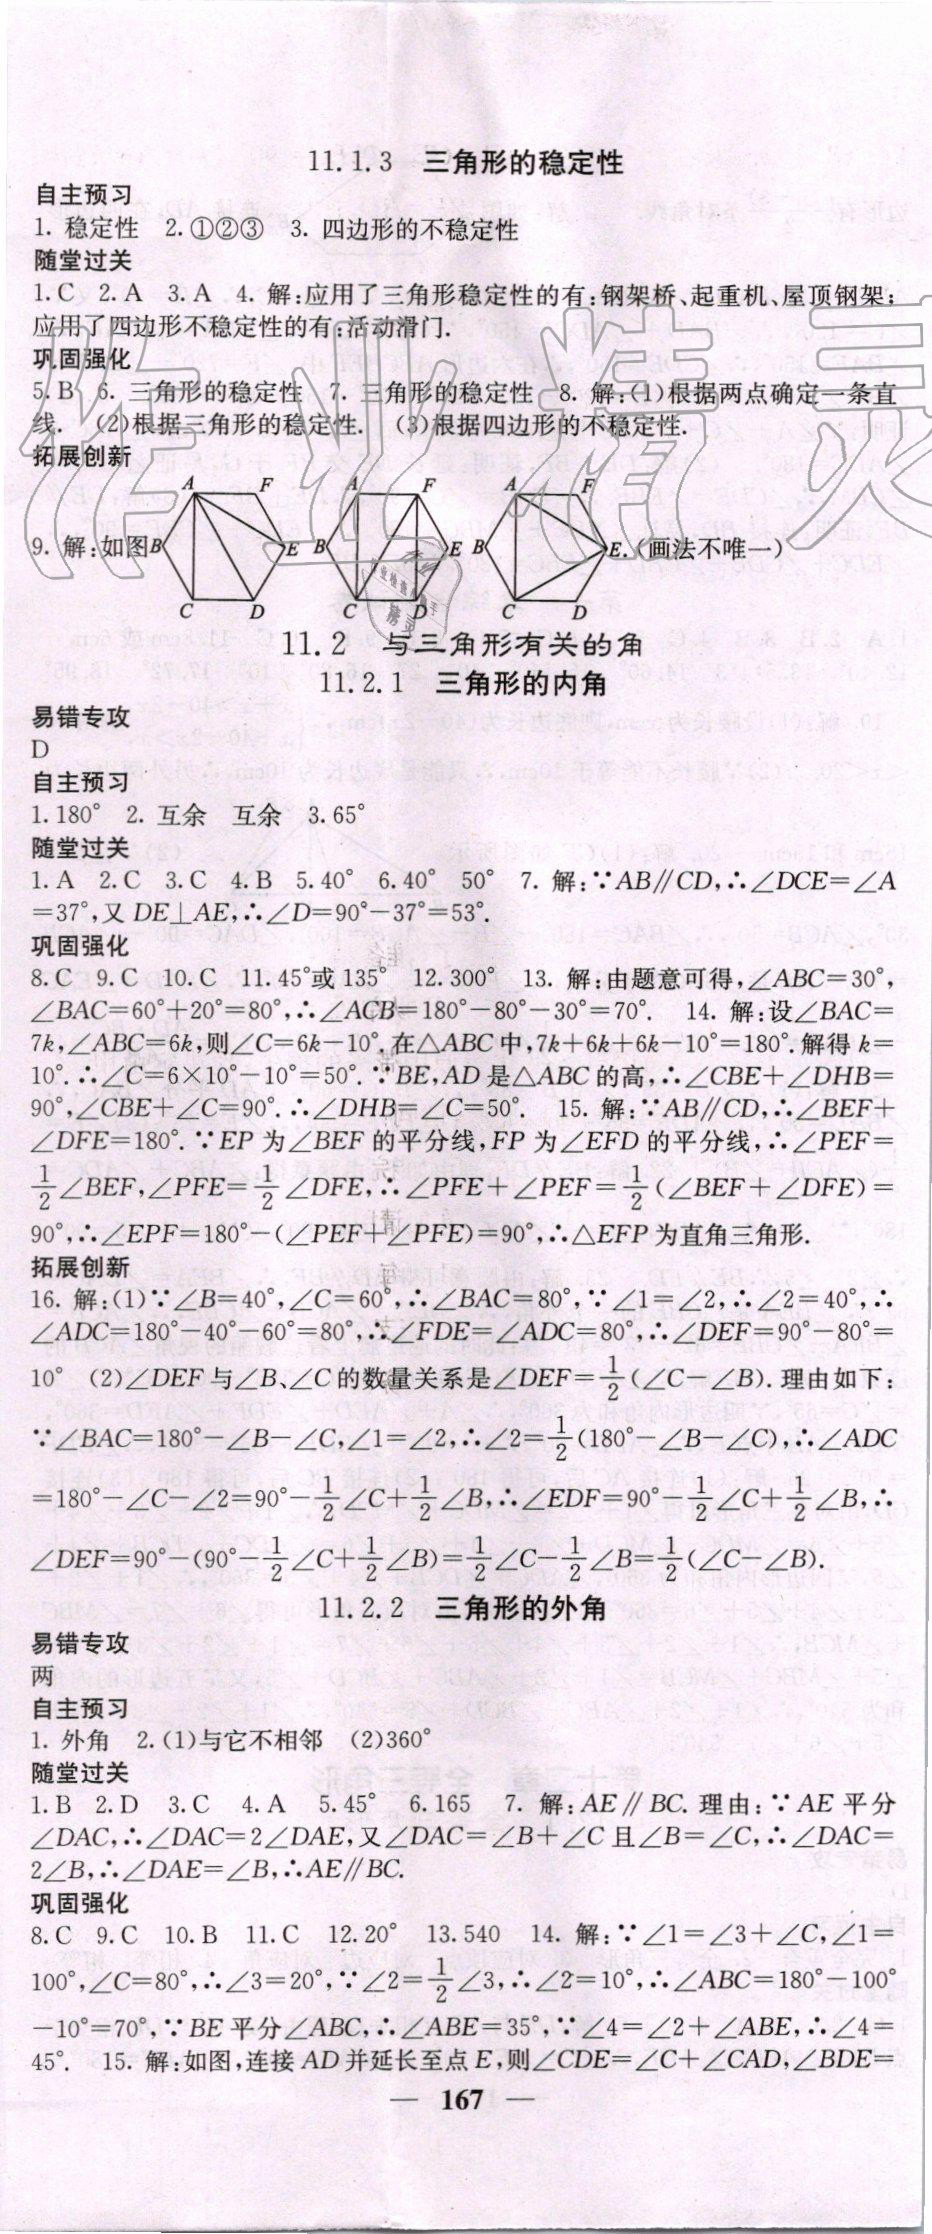 11.1.3 三角形的稳定性
自主预习
1. 稳定性 2.①②③ 3. 四边形的不稳定性
随堂过关
1.C 2.A 3.A 4. 解:应用了三角形稳定性的有:钢架桥、起重机、屋顶钢架;
应用了四边形不稳定性的有:活动滑门.
巩固强化
5.B 6. 三角形的稳定性 7. 三角形的稳定性 8. 解:(1)根据两点确定一条直
线. (2)根据三角形的稳定性. (3)根据四边形的不稳定性.
拓展创新
A F A F A F
9. 解:如图 B E B E B E.(画法不唯一)
C D C D C D
11.2 与三角形有关的角
11.2.1 三角形的内角
易错专攻
D
自主预习
1.180° 2. 互余 互余 3.65°
随堂过关
1.A 2.C 3.C 4.B 5.40° 6.40° 50° 7. 解:∵AB∥CD,∴∠DCE=∠A
=37°,又 DE⊥AE,∴∠D=90°-37°=53°.
巩固强化
8.C 9.C 10.C 11.45°或 135° 12.300° 13. 解:由题意可得,∠ABC=30°,
∠BAC=60°+20°=80°,∴∠ACB=180°-80°-30°=70°. 14. 解:设∠BAC=
7k,∠ABC=6k,则∠C=6k-10°.在△ABC中,7k+6k+6k-10°=180°.解得 k=
10°.∴∠C=6×10°-10°=50°.∵BE,AD是△ABC的高,∴∠CBE+∠DHB=
90°,∠CBE+∠C=90°.∴∠DHB=∠C=50°. 15. 解:∵AB∥CD,∴∠BEF+
∠DFE=180°.∵EP 为∠BEF 的平分线,FP 为∠EFD 的平分线,∴∠PEF=
1/2∠BEF,∠PFE=1/2∠DFE,∴∠PFE+∠PEF=1/2(∠BEF+∠DFE)=
90°,∴∠EPF=180°-(∠PEF+∠PFE)=90°,∴△EFP为直角三角形.
拓展创新
16. 解:(1)∵∠B=40°,∠C=60°,∴∠BAC=80°,∵∠1=∠2,∴∠2=40°,∴
∠ADC=180°-40°-60°=80°,∴∠FDE=∠ADC=80°,∴∠DEF=90°-80°=
10° (2)∠DEF与∠B、∠C的数量关系是∠DEF=1/2(∠C-∠B).理由如下:
∵∠BAC=180°-∠B-∠C,∠1=∠2,∴∠2=1/2(180°-∠B-∠C),∴∠ADC
=180°-∠C-∠2=90°-1/2∠C+1/2∠B,∴∠EDF=90°-1/2∠C+1/2∠B,∴
∠DEF=90°-(90°-1/2∠C+1/2∠B)=1/2∠C-1/2∠B=1/2(∠C-∠B).
11.2.2 三角形的外角
易错专攻
两
自主预习
1. 外角 2.(1)与它不相邻 (2)360°
随堂过关
1.B 2.D 3.C 4.A 5.45° 6.165 7. 解:AE∥BC.理由:∵AE 平分
∠DAC,∴∠DAC=2∠DAE,又∠DAC=∠B+∠C且∠B=∠C,∴∠DAC=
2∠B,∴∠DAE=∠B,∴AE∥BC.
巩固强化
8.C 9.C 10.B 11.C 12.20° 13.540 14. 解:∵∠1=∠3+∠C,∠1=
100°,∠C=80°,∴∠3=20°,∵∠2=1/2∠3,∴∠2=10°,∴∠ABC=180°-100°
-10°=70°,∵BE平分∠ABC,∴∠ABE=35°,∵∠4=∠2+∠ABE,∴∠4=
45°. 15. 解:如图,连接AD并延长至点E,则∠CDE=∠C+∠CAD,∠BDE=
— 167 —